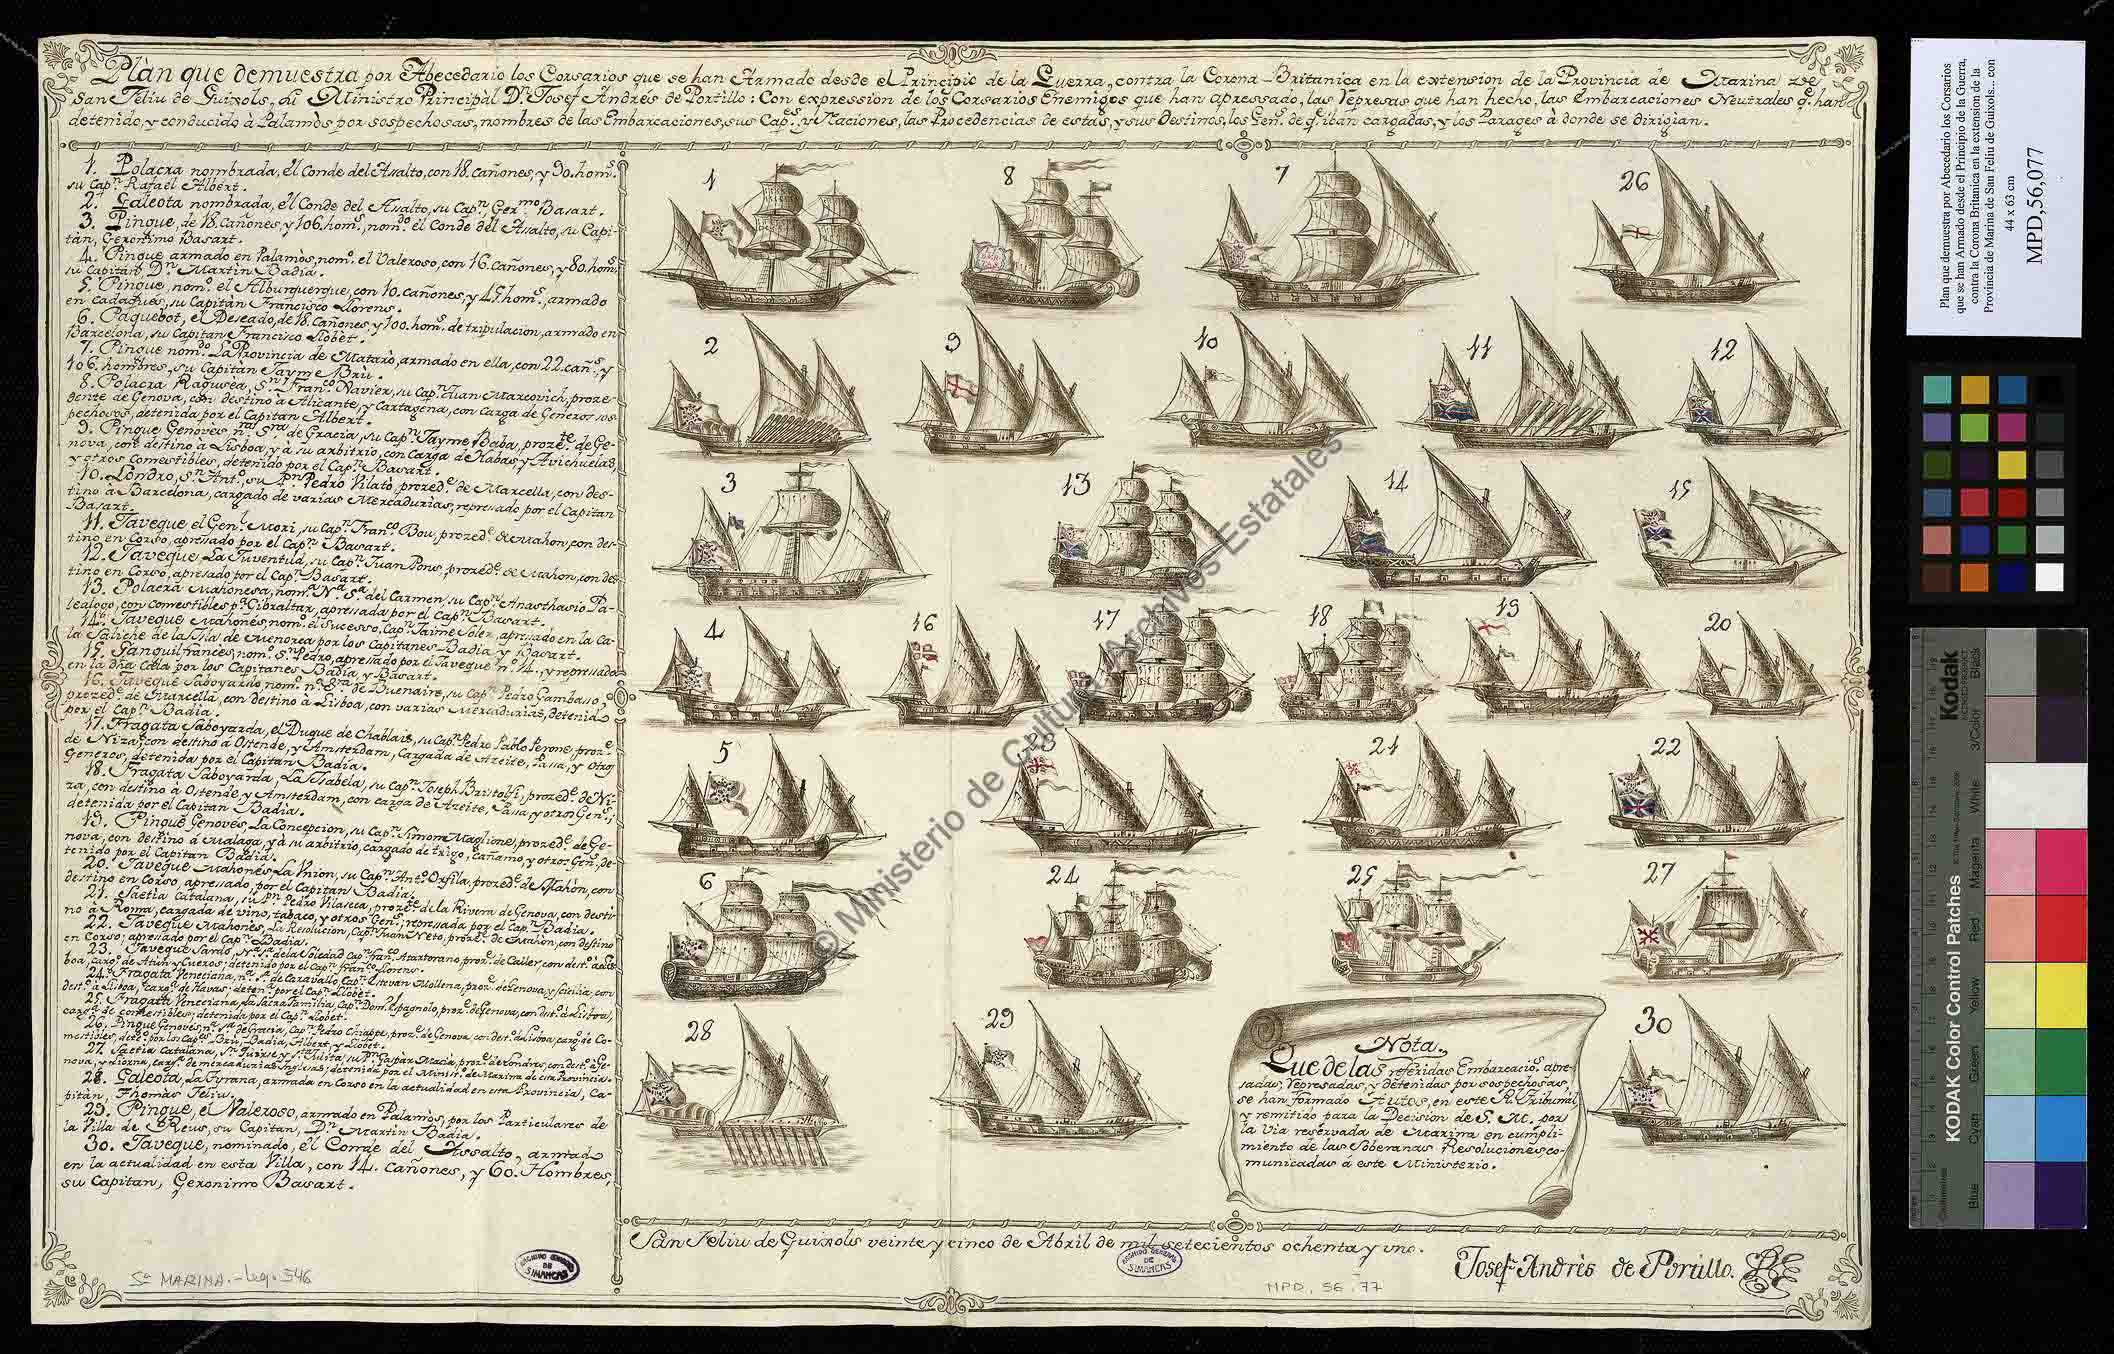 Plàn que demuestra por Abecedario los Corsarios que se han Armado desde el Principio de la Guerra, contra la Corona Britanica en la extension de la Provincia de Marina de
San Feliu de Guixols, su Ministro Principàl Dn. Josef Andrés de Portillo: Con expression de los Corsarios Enemigos que han apressado, las Represas que han hecho, las Embarcaciones Neutrales qe. han
detenido, y conducido à Palamòs por sospechosas, nombres de las Embarcaciones, sus Capes. y Naciones, las Procedencias de estas, y sus Destinos, los Gens. de qe. iban cargadas, y los Parages à donde se dirigian.
1. Polacra nombrada, el Conde del Asalto, con 18. cañones, y 90. homs.
su Capn. Rafaèl Albert.
2. Galeota nombrada, el Conde del Asalto, su Capn. Germo Basart.
3. Pingue, de 18. Cañones, y 106. homs., nomdo. el Conde del Asalto, su Capi-
tàn, Geronimo Basart.
4. Pingue armado en Palamòs, nomo. el Valeroso, con 16. Cañones, y 80. homs.
su Capitàn Dn. Martin Badia.
5. Pingue, nomo. el Alburquerque, con 10. cañones, y 45. homs., armado
en Cadaquès, su Capitàn Francisco Llorens.
6. Paquebot, el Deseado, de 18. Cañones, y 100. homs. de tripulacion, armado en
Barcelona, su Capitan Francisco Llobet.
7. Pingue nomdo. La Provincia de Mataró, armado en ella, con 22. cañs. y
106. hombres, su Capitan Jayme Brú.
8. Polacra Ragusea, Sn. Franco. Xavier, su Capn. Juan Marcovich, proze-
dente de Genova, con destino à Alicante, y Cartagena, con carga de Generos sos-
pechosos, detenida por el Capitan Albert.
9. Pingue Genovés nra. Sra. de Gracia, su Capn. Jayme Baba, prozte. de Ge-
nova, con destino à Lisboa, y à su arbitrio, con Carga de Habas, y Avichuelas,
y otros Comestibles, detenido por el Capn. Basart.
10. Londro, Sn. Anto., su Pn. Pedro Vilató, prozede. de Marcella, con des-
tino à Barcelona, cargado de varias Mercadurias, represado por el Capitan
Basart.
11. Javeque el Genl. Mori, su Capn. Franco. Bou, prozede. de Mahon, con des-
tino en Corso, apresado por el Capn. Basart.
12. Javeque La Juventud, su Capn. Juan Pons, prozede. de Mahon, con des-
tino en Corso, apresado por el Capn. Basart.
13. Polacra Mahonesa, nomo. Na. Sa. del Carmen, su Capn. Anasthasio Pa-
leologo, con comestibles pa. Gibraltar, apressada por el Capn. Basart.
14. Javeque Mahonés, nomo. el Sucesso, Capn. Jaime Soler, apresado en la Ca-
la Galiche de la Isla de Menorca por los Capitanes Badia y Basart.
15. Ganguil francès, nomo. Sn. Pedro, apresado por el Javeque no. 14., y represado
en la dha Cala por los Capitanes Badia, y Basart.
16. Javeque Saboyardo nomo. na. Sra. de Buenaire, su Capn. Pedro Gambaso,
prozede. de Marcella, con destino à Lisboa, con varias Mercadurias, detenido
por el Capn. Badia.
17. Fragata Saboyarda, el Duque de Chablais, su Capn. Pedro Pablo Perone, proze.
de Niza, con destino à Ostende, y Amsterdam, Cargada de Azeite, Passa, y otros
Generos, detenida por el Capitan Badia.
18. Fragata Saboyarda, La Isabela, su Capn. Joseph Bristolfi, prozede. de Ni-
za, con destino à Ostende y Amsterdam, con carga de Azeite, Pasa, y otros Gens.,
detenida por el Capitan Badia.
19. Pingue Genovés, La Concepcion, su Capn. Simon Maglione, prozede. de Ge-
nova, con destino à Malaga, y à su arbitrio, cargado de trigo, Cañamo, y otros Gens., de-
tenido por el Capitan Badia.
20. Javeque Mahonés La Union, su Capn. Anto. Orfila, prozede. de Mahòn, con
destino en Corso, apressado, por el Capitan Badia.
21. Saetia Catalana, su Pn. Pedro Vilaseca, prozte. de la Rivera de Genova, con desti-
no à Roma, cargada de vino, tabaco, y otros Gens.; represada por el Capn. Badia.
22. Javeque Mahonés, La Resolucion, Capn. Juan Neto, proze. de Mahon, con destino
en Corso; apresado por el Capn. Badia.
23. Javeque Sardo, Na. Sa. de la Soledad Capn. Fran. Atartorano, proze. de Cailer, con dest. à Lis-
boa, cargo. de Atun, y Cueros; detenido por el Capn. Franco. Llorens.
24. Fragata Veneciana, na. sa. de Caravallo Capn. Estevan Mollena, proze. de Genova, y Sicilia, con
desto. à Lisboa, cargo. de Havas; detena. por el Capn. Llobet.
25. Fragata Veneciana, La Sacra Familia, Capn. Domo. Espagnolo, proze. de Genova, con desto. à Lisboa,
cargo. de comestibles; detenida por el Capn. Llobet.
26. Pingue Genovés, na. sa. de Gracia, Capn. Pedro Chiappe, proze. de Genova, con desto. à Lisboa, cargo. de Co-
mestibles, deteo. por los Capes. Brú, Badia, Albert, y Llobet.
27. Saetia Catalana, Sta. Juise y Sta. Julita, su Pn. Gaspàr Macià, proze. de Londres, con desto. à Ge-
nova, y Liorna, carga. de mercadurias Inglesas; detenida por el Minisro. de Marina de esta Provincia.
28. Galeota, La Tyrana, armada en Corso en la actualidad en esta Provincia, Ca-
pitàn, Thomàs Feliu.
29. Pingue, el Valeroso, armado en Palamòs, por los Particulares de
la Villa de Reus, su Capitan, Dn. Martin Badia.
30. Javeque, nominado, el Conde del Assalto, armado
en la actualidad en esta Villa, con 14. cañones, y 60. Hombres,
su Capitan, Geronimo Basart.
1 8 7 26
2 9 10 11 12
3 13 14 15
4 16 17 18 19 20
5 23 21 22
6 24 25 27
28 29 30
Nota.
Que de las referidas Embarcacios. apre-
sadas, Represadas, y detenidas por sospechosas,
se han formado Autos, en este Rl. Tribunal
y remitido para la Decision de S. M. por
la via reservada de Marina en cumpli-
miento de las Soberanas Resoluciones co-
municadas à este Ministerio.
San Feliu de Guixols veinte y cinco de Abril de mil setecientos ochenta y uno.
Josef Andrès de Portillo.
Sa MARINA.-Leg. 546
ARCHIVO GENERAL
DE
SIMANCAS
ARCHIVO GENERAL
DE
SIMANCAS
MPD. 56-77
© Ministerio de Cultura. Archivos Estatales
Plan que demuestra por Abecedario los Corsarios
que se han Armado desde el Principio de la Guerra,
contra la Corona Britanica en la extension de la
Provincia de Marina de San Feliu de Guixols... con
44 x 63 cm
MPD,56,077
Kodak
KODAK Color Control Patches
Blue Cyan Green Yellow Red Magenta White 3/Color Black